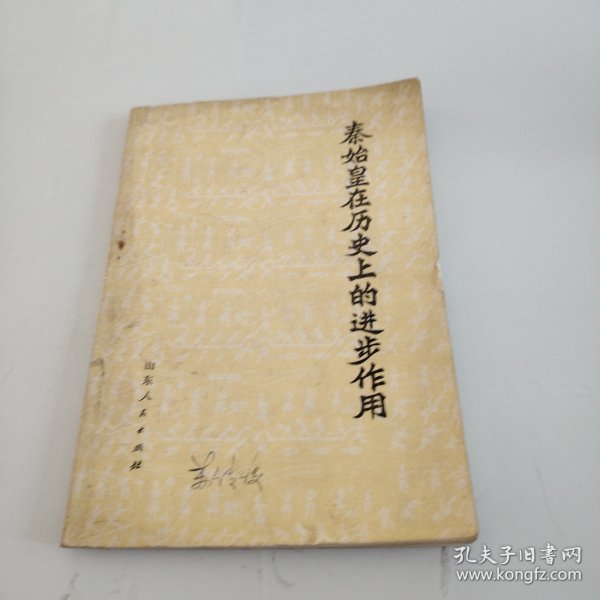 秦始皇在历史上的进步作用
山东人民出版社
孔夫子旧书网
www.kongfz.com